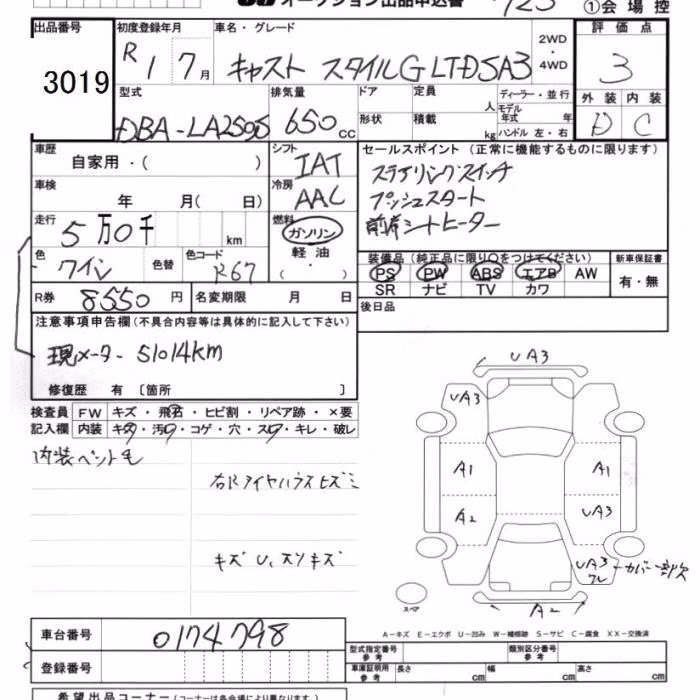 オークション出品申込書
①会場控
出品番号
3019
初度登録年月
R 1 7月
車名・グレード
キャスト スタイルG LTD SA3
2WD・4WD
評価点
3
外装 内装
D C
型式
DBA-LA250S
排気量
650cc
ドア
形状
定員 人
積載 kg
ディーラー・並行
モデル年式 年
ハンドル 左・右
車歴
自家用・( )
シフト
IAT
セールスポイント (正常に機能するものに限ります)
ステアリングスイッチ
プッシュスタート
前席シートヒーター
車検
年 月( 日)
冷房
AAC
走行
5万0千 km
燃料
ガソリン
軽油
( ・ )
色
ワイン
色替
色コード
R67
装備品 (純正品に限り○をつけてください)
PS PW ABS エアB AW
SR ナビ TV カワ
新車保証書
有・無
R券 8550円
名変期限 月 日
後日品
注意事項申告欄 (不具合内容等は具体的に記入して下さい)
現メーター 51014km
修復歴 有 〔箇所 〕
検査員記入欄
FW キズ・飛石・ヒビ割・リペア跡・×要
内装 キズ・汚れ・コゲ・穴・スレ・キレ・破レ
内装ペット毛
右Rタイヤハウスヒズミ
キズ U、スリキズ
UA3
UA3
A1
A1
A2
UA3
UA3
ワレ
カバー欠
A2
スペア
A-キズ E-エクボ U-凹み W-補修跡 S-サビ C-腐食 XX-交換済
車台番号
0174798
登録番号
型式指定番号
参考
類別区分番号
参考
車庫証明用
参考
長さ cm
幅 cm
高さ cm
希望出品コーナー (コーナーは各会場により異なります。)